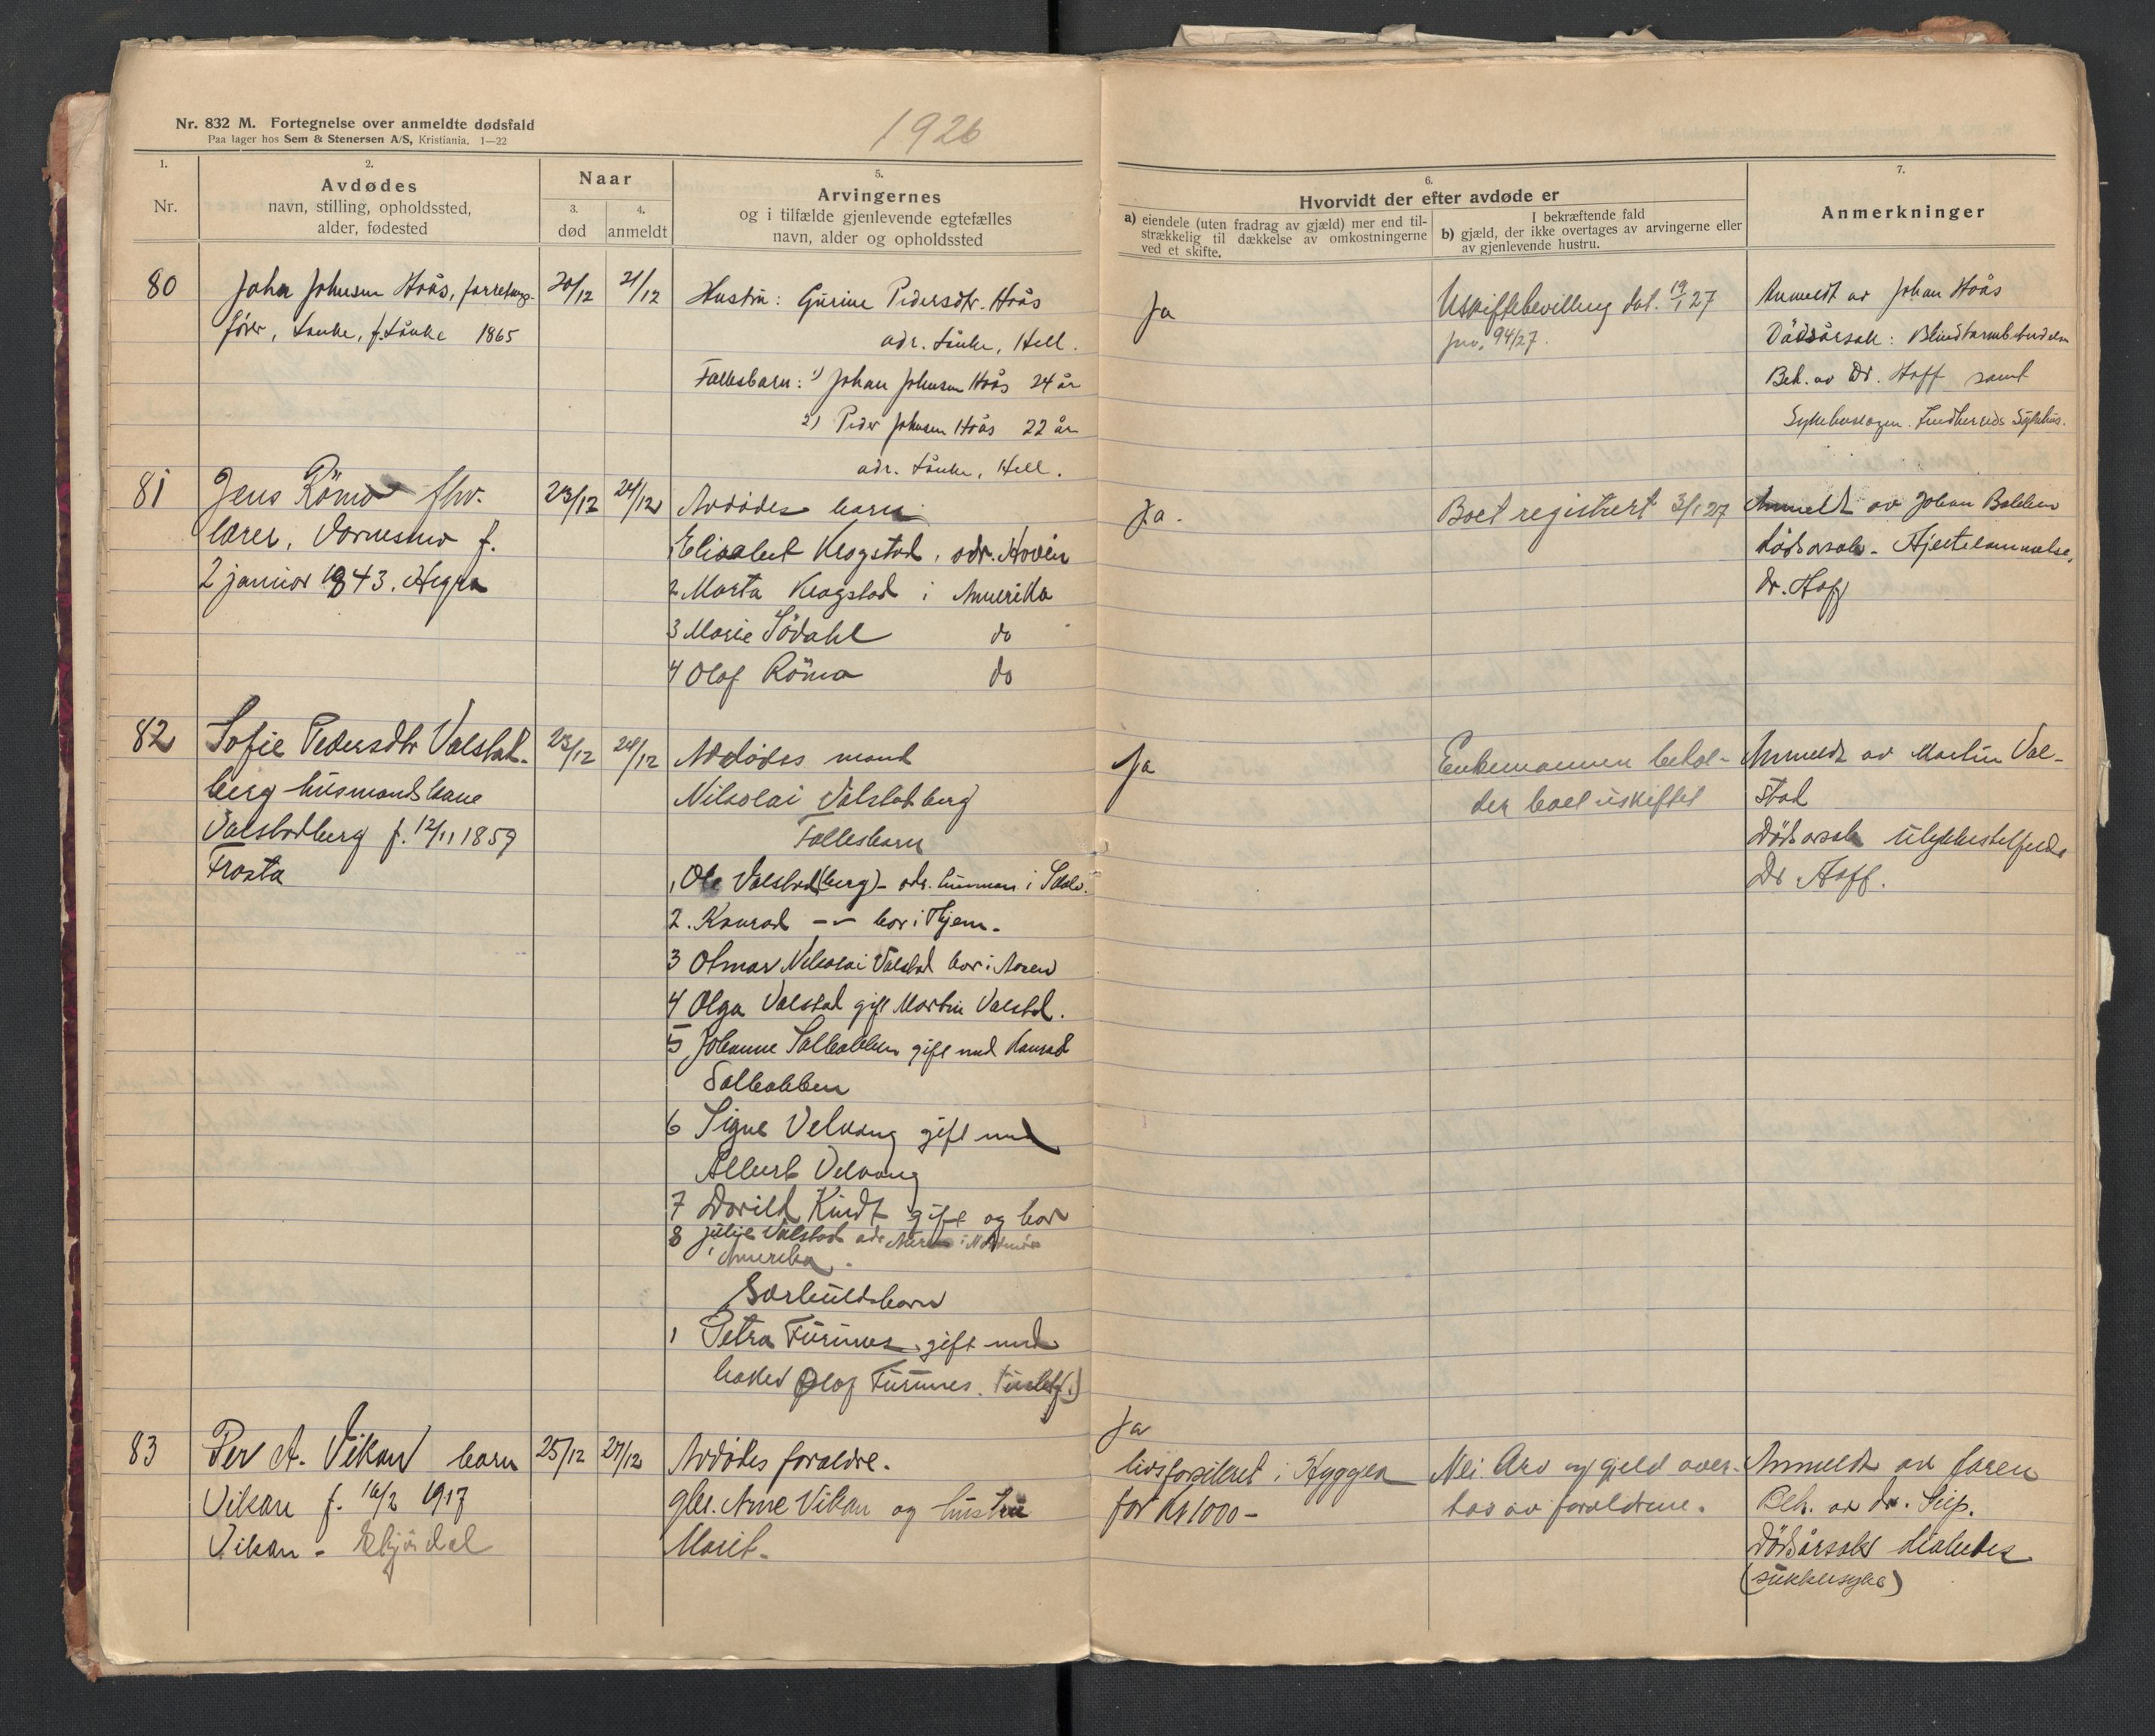 Nr. 832 M. Fortegnelse over anmeldte dødsfald
Paa lager hos Sem & Stenersen A/S, Kristiania. 1—22
1926
1.
Nr.
2.
Avdødes
navn, stilling, opholdssted,
alder, fødested
Naar
3.
død
4.
anmeldt
5.
Arvingernes
og i tilfælde gjenlevende egtefælles
navn, alder og opholdssted
6.
Hvorvidt der efter avdøde er
a) eiendele (uten fradrag av gjæld) mer end til-
strækkelig til dækkelse av omkostningerne
ved et skifte.
I bekræftende fald
b) gjæld, der ikke overtages av arvingerne eller
av gjenlevende hustru.
7.
Anmerkninger
80
John Johnsen Hoås, forretnings-
fører, Lånke, f. Lånke 1865
20/12
21/12
Hustru: Gurine Pedersdtr. Hoås
adr. Lånke, Hell.
Fællesbarn: 1) Johan Johnsen Hoås 24 år
2) Peder Johnsen Hoås 22 år
adr. Lånke, Hell.
Ja
Uskiftebevilling dat. 19/1 27
jnr. 94/27.
Anmeldt av Johan Hoås
Dødsårsak: Blindtarmbetændelse
Beh. av Dr. Hoff samt
Sykehuslægen. Innherreds Sykehus.
81
Jens Römo fhv.
lærer, Værnesmo f.
2 januar 1843. Hegra
23/12
24/12
Avdødes barn
1 Elisabet Krogstad, adr. Hoven
2 Marta Krogstad i Amerika
3 Marie Södahl do
4 Olaf Römo do
Ja.
Boet registrert 3/1 27
Anmeldt av Johan
Dødsårsak - Hjertelammelse.
Dr. Hoff
82
Sofie Pedersdtr Valstad-
berg husmandskone
Valstadberg f. 12/11 1859
Frosta
23/12
24/12
Avdødes mand
Nikolai Valstadberg
Fællesbarn
1, Ole Valstad(berg) - adr.
2. Konrad -"- bor i Hjem.
3 Otmar Nikolai Valstad bor i Aasen
4 Olga Valstad gift Martin Valstad.
5 Johanne Salbakken gift med Konrad
Salbakken
6 Signe Velvang gift med
Albert Velvang
7 Dorild Kindt gift og bor
8 Julie Valstad adr
i Amerika.
Særkuldsbarn
1 Petra Furunes, gift med
baker Olaf Furunes.
Ja
Enkemannen behol-
der boet uskiftet
Anmeldt av Martin Val-
stad
Dødsårsak ulykkestilfelde
Dr Hoff.
83
Per A. Vikan barn
Vikan f. 16/2 1917
Vikan - Skjördal
25/12
27/12
Avdødes foreldre.
gbr. Arne Vikan og hustru
Marit.
Ja
livsforsikret i Hygea
for Kr 1000-
Nei. Arv og gjeld over-
tas av foreldrene.
Anmeldt av faren
Beh. av dr.
Dødsårsak diabetes
(sukkersyke)